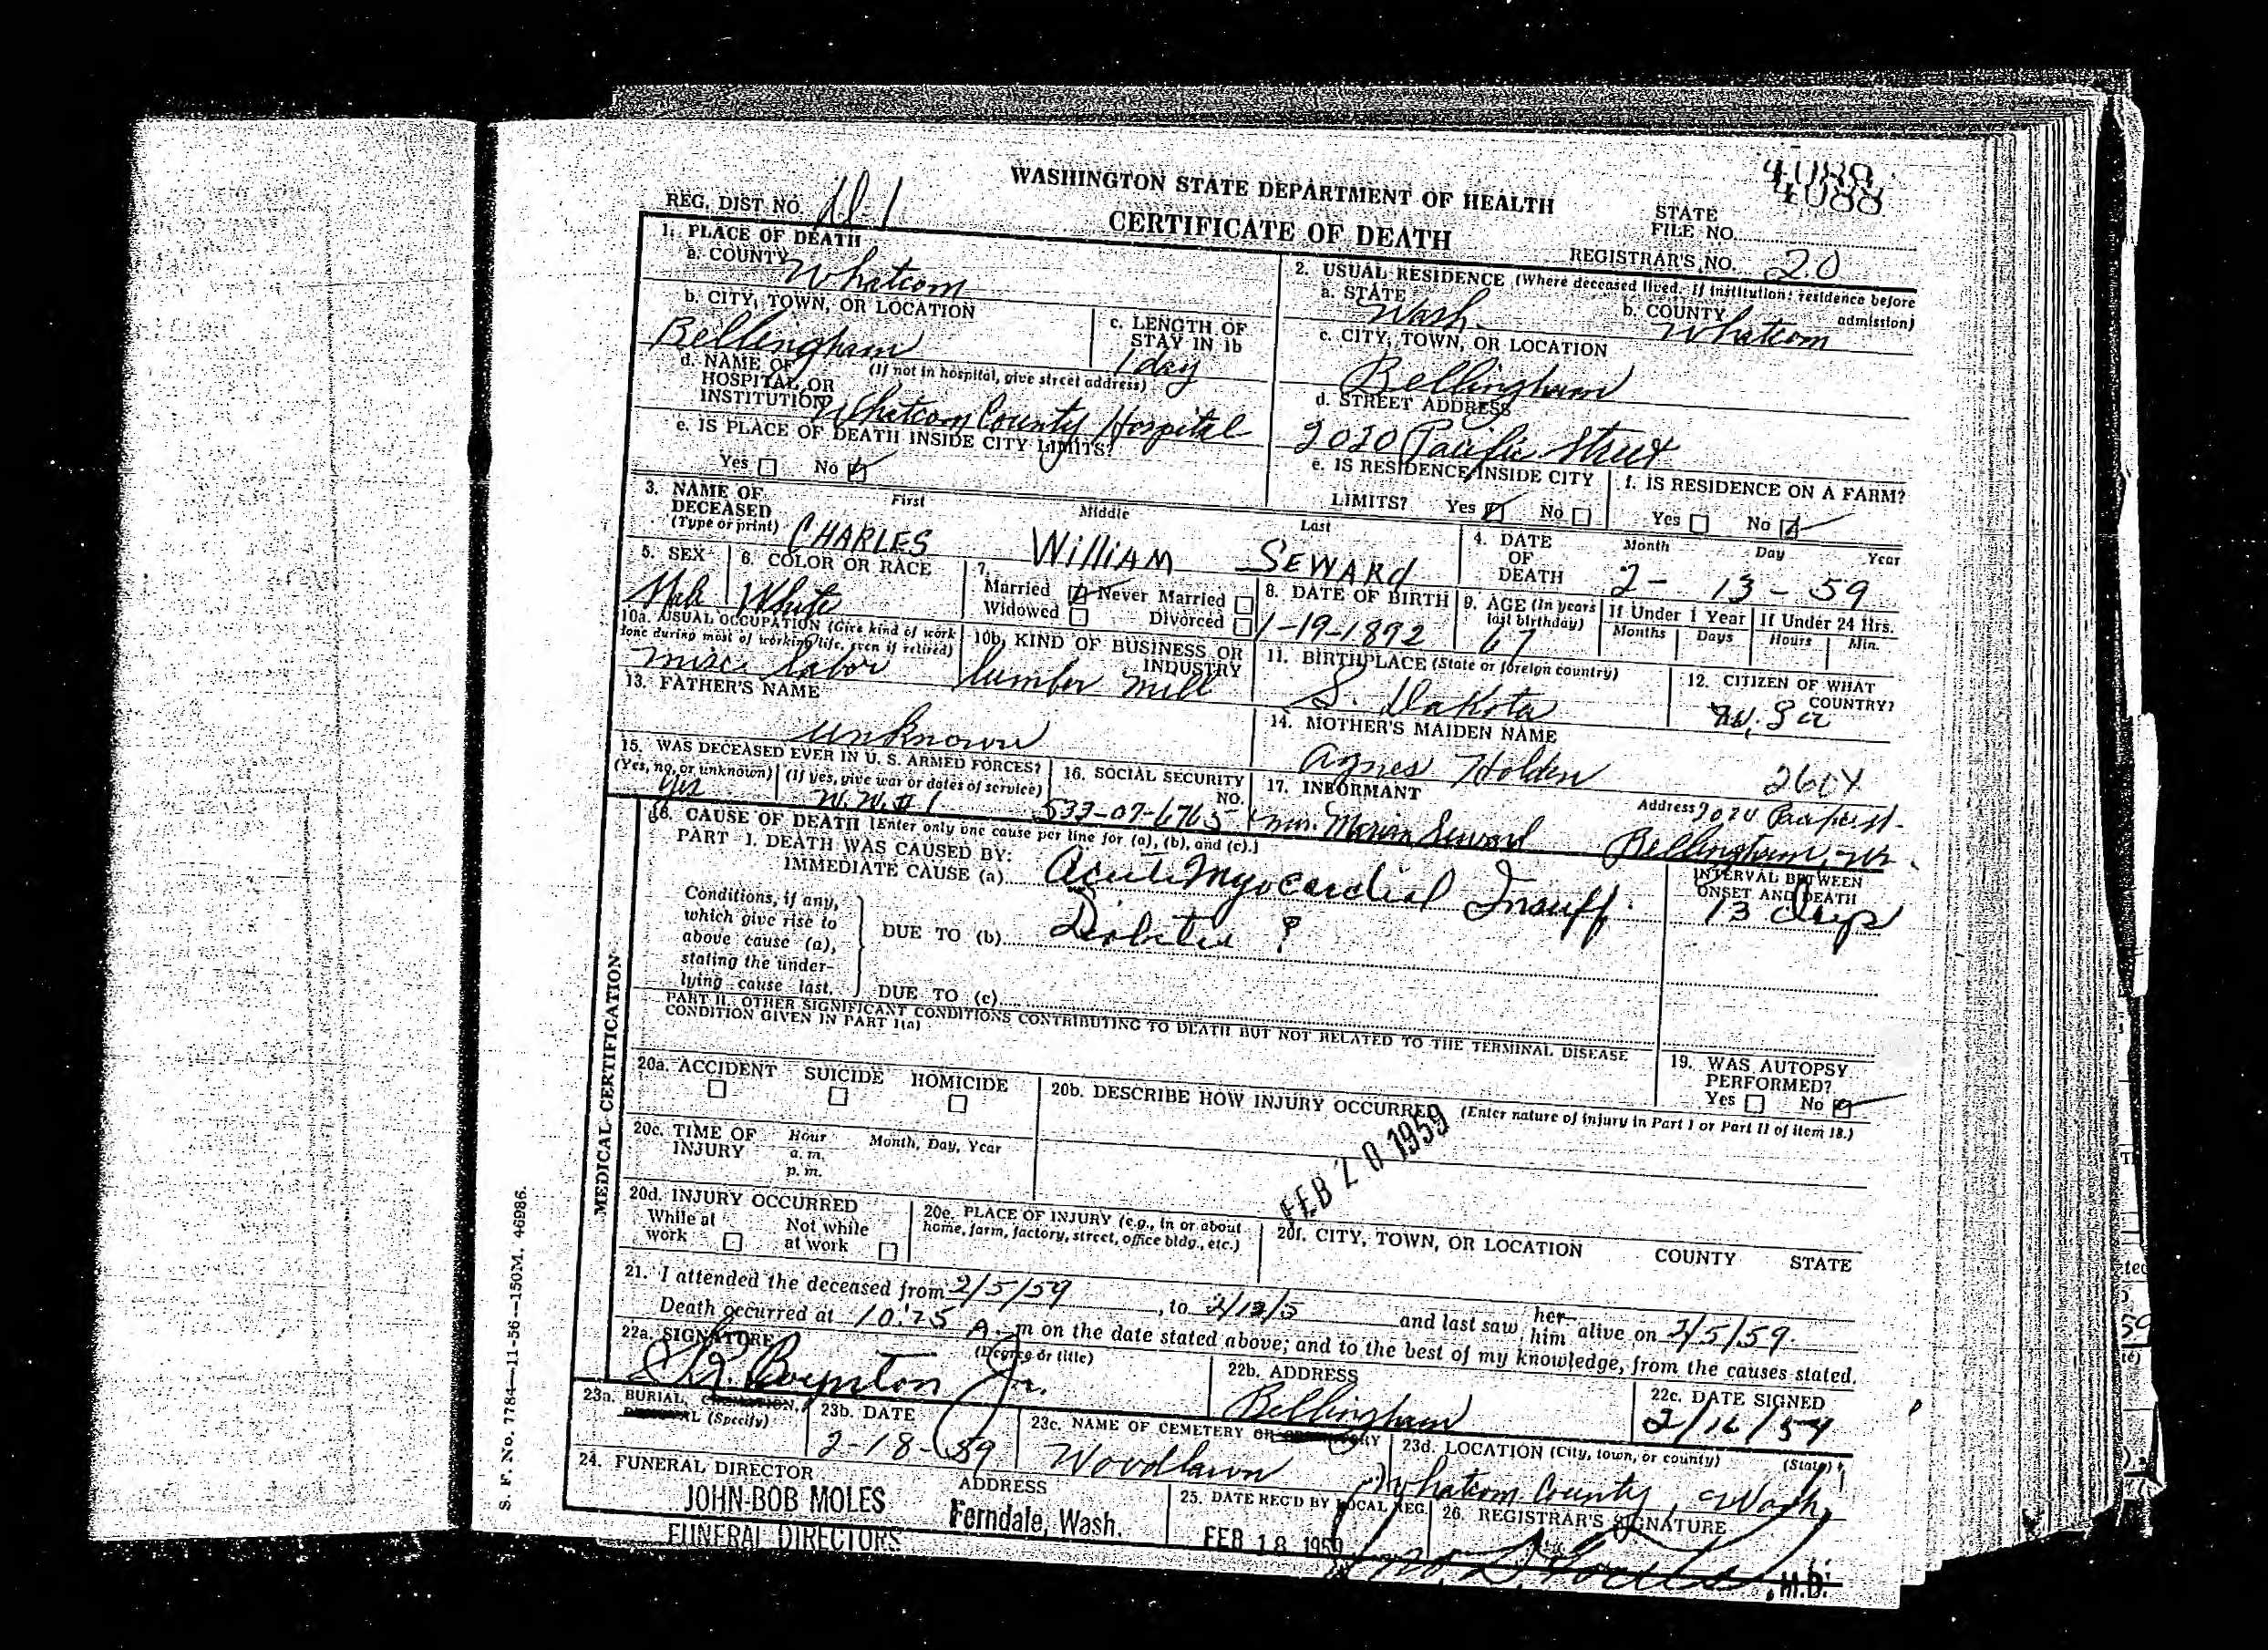 4089
4088
WASHINGTON STATE DEPARTMENT OF HEALTH
CERTIFICATE OF DEATH
REG. DIST. NO.
STATE FILE NO.
REGISTRAR'S NO. 20
1. PLACE OF DEATH
a. COUNTY Whatcom
b. CITY, TOWN, OR LOCATION
Bellingham
c. LENGTH OF STAY IN 1b
1 day
d. NAME OF HOSPITAL OR INSTITUTION (If not in hospital, give street address)
Whatcom County Hospital
e. IS PLACE OF DEATH INSIDE CITY LIMITS?
Yes No
2. USUAL RESIDENCE (Where deceased lived. If institution: residence before admission)
a. STATE Wash.
b. COUNTY Whatcom
c. CITY, TOWN, OR LOCATION
Bellingham
d. STREET ADDRESS
2020 Pacific Street
e. IS RESIDENCE INSIDE CITY LIMITS? Yes No
f. IS RESIDENCE ON A FARM?
Yes No
3. NAME OF DECEASED (Type or print)
First Middle Last
CHARLES WilliAM SEWARd
4. DATE OF DEATH
Month Day Year
2- 13- 59
5. SEX
Male
6. COLOR OR RACE
White
7.
Married Never Married
Widowed Divorced
8. DATE OF BIRTH
1-19-1892
9. AGE (In years last birthday)
67
If Under 1 Year
Months Days
If Under 24 Hrs.
Hours Min.
10a. USUAL OCCUPATION (Give kind of work done during most of working life, even if retired)
misc. labor
10b. KIND OF BUSINESS OR INDUSTRY
lumber mill
11. BIRTHPLACE (State or foreign country)
S. Dakota
12. CITIZEN OF WHAT COUNTRY?
13. FATHER'S NAME
unknown
14. MOTHER'S MAIDEN NAME
Agnes Holden
15. WAS DECEASED EVER IN U. S. ARMED FORCES?
(Yes, no, or unknown) (If yes, give war or dates of service)
Yes W.W. # 1
16. SOCIAL SECURITY NO.
533-07-6765
17. INFORMANT
Mrs. Marian Seward
Address 2020 Pacific St.
Bellingham, Wn.
18. CAUSE OF DEATH [Enter only one cause per line for (a), (b), and (c).]
PART I. DEATH WAS CAUSED BY:
IMMEDIATE CAUSE (a) Acute Myocardial Insuff.
INTERVAL BETWEEN ONSET AND DEATH
13 days
Conditions, if any, which give rise to above cause (a), stating the underlying cause last.
DUE TO (b) Diabetes ?
DUE TO (c)
PART II. OTHER SIGNIFICANT CONDITIONS CONTRIBUTING TO DEATH BUT NOT RELATED TO THE TERMINAL DISEASE CONDITION GIVEN IN PART I(a)
19. WAS AUTOPSY PERFORMED?
Yes No
MEDICAL CERTIFICATION
20a. ACCIDENT SUICIDE HOMICIDE
20b. DESCRIBE HOW INJURY OCCURRED (Enter nature of injury in Part I or Part II of item 18.)
FEB 20 1959
20c. TIME OF INJURY
Hour Month, Day, Year
a. m.
p. m.
20d. INJURY OCCURRED
While at work Not while at work
20e. PLACE OF INJURY (e.g., in or about home, farm, factory, street, office bldg., etc.)
20f. CITY, TOWN, OR LOCATION COUNTY STATE
21. I attended the deceased from 2/5/59, to 2/13/5 and last saw her him alive on 2/5/59.
Death occurred at 10:25 A. m on the date stated above; and to the best of my knowledge, from the causes stated.
22a. SIGNATURE (Degree or title)
Boynton Jr.
22b. ADDRESS
Bellingham
22c. DATE SIGNED
2/16/59
23a. BURIAL, CREMATION, REMOVAL (Specify)
23b. DATE
2-18-59
23c. NAME OF CEMETERY OR CREMATORY
Woodlawn
23d. LOCATION (City, town, or county) (State)
Whatcom County, Wash.
24. FUNERAL DIRECTOR ADDRESS
JOHN-BOB MOLES
FUNERAL DIRECTORS
Ferndale, Wash.
25. DATE REC'D BY LOCAL REG.
FEB 18 1959
26. REGISTRAR'S SIGNATURE
M.D.
S. F. No. 7784—11-56—150M. 46986.